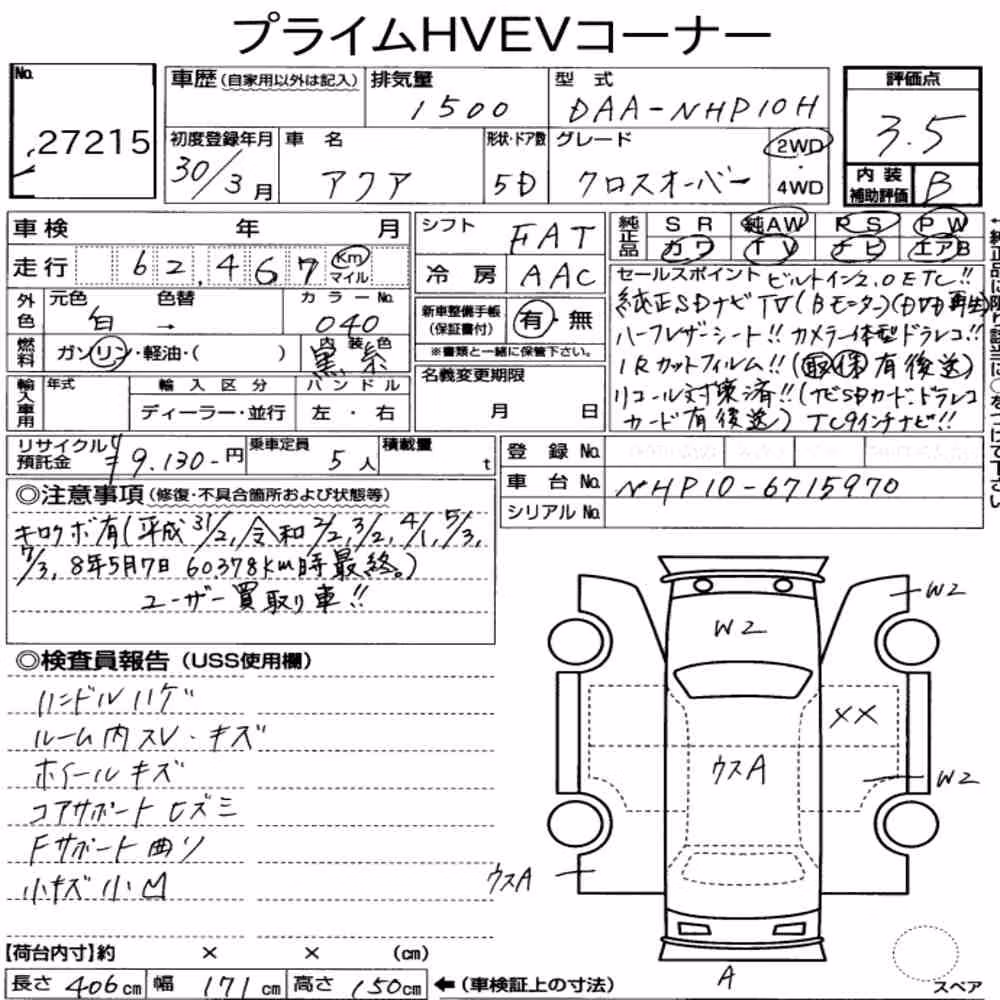 プライムHVEVコーナー
No. 27215
車歴 (自家用以外は記入)
排気量 1500
型式 DAA-NHP10H
評価点 3.5
初度登録年月 30/3月
車名 アクア
形状・ドア数 5D
グレード クロスオーバー
2WD・4WD
内装補助評価 B
車検 年 月
シフト FAT
純正品 SR 純AW RS PW
カワ TV ナビ エアB
走行 62,467 Km マイル
冷房 AAC
外色 元色 白 → 色替 カラーNo. 040
新車整備手帳(保証書付) 有・無
※書類と一緒に保管下さい。
燃料 ガソリン・軽油・( ) 内装色 黒系
セールスポイント ビルトイン2.0ETC!!
純正SDナビTV(Bモニター)(DVD再生)
ハーフレザーシート!! カメラ一体型ドラレコ!!
IRカットフィルム!! (取保有後送)
リコール対策済!! (ナビSDカードドラレコ
カード有後送) TC9インチナビ!!
名義変更期限 月 日
輸入車用 年式 輸入区分 ディーラー・並行 ハンドル 左・右
リサイクル預託金 ¥9,130-円
乗車定員 5人
積載量 t
登録No.
車台No. NHP10-6715970
シリアルNo.
◎注意事項(修復・不具合箇所および状態等)
キロクボ有(平成31/2,令和2/2,3/2,4/1,5/3,
7/3,8年5月7日 60378km時最終。)
ユーザー買取り車!!
◎検査員報告(USS使用欄)
ハンドルハゲ
ルーム内スレ・キズ
ホイールキズ
コアサポートヒズミ
Fサポート曲り
小キズ小凹
W2
W2
XX
ウスA
W2
ウスA
A
スペア
【荷台内寸】約 × × (cm)
長さ 406cm 幅 171cm 高さ 150cm ←(車検証上の寸法)